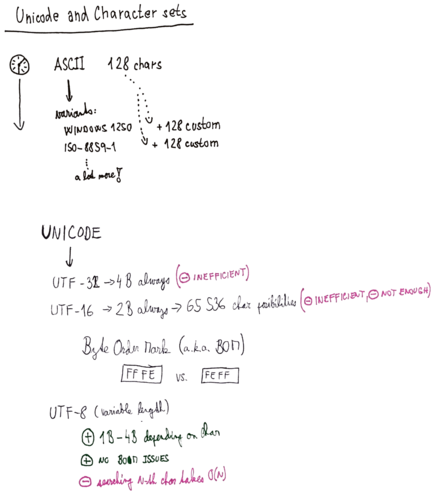 Unicode and Character sets
ASCII 128 chars
variants:
WINDOWS 1250 + 128 custom
ISO-8859-1 + 128 custom
a lot more!
UNICODE
UTF-32 → 4B always (⊖ INEFFICIENT)
UTF-16 → 2B always → 65 536 char posibilities (⊖ INEFFICIENT, ⊖ NOT ENOUGH)
Byte Order Mark (a.k.a. BOM)
FFFE vs. FEFF
UTF-8 (variable length)
⊕ 1B-4B depending on char
⊕ NO BOM ISSUES
⊖ searching N-th char takes O(N)